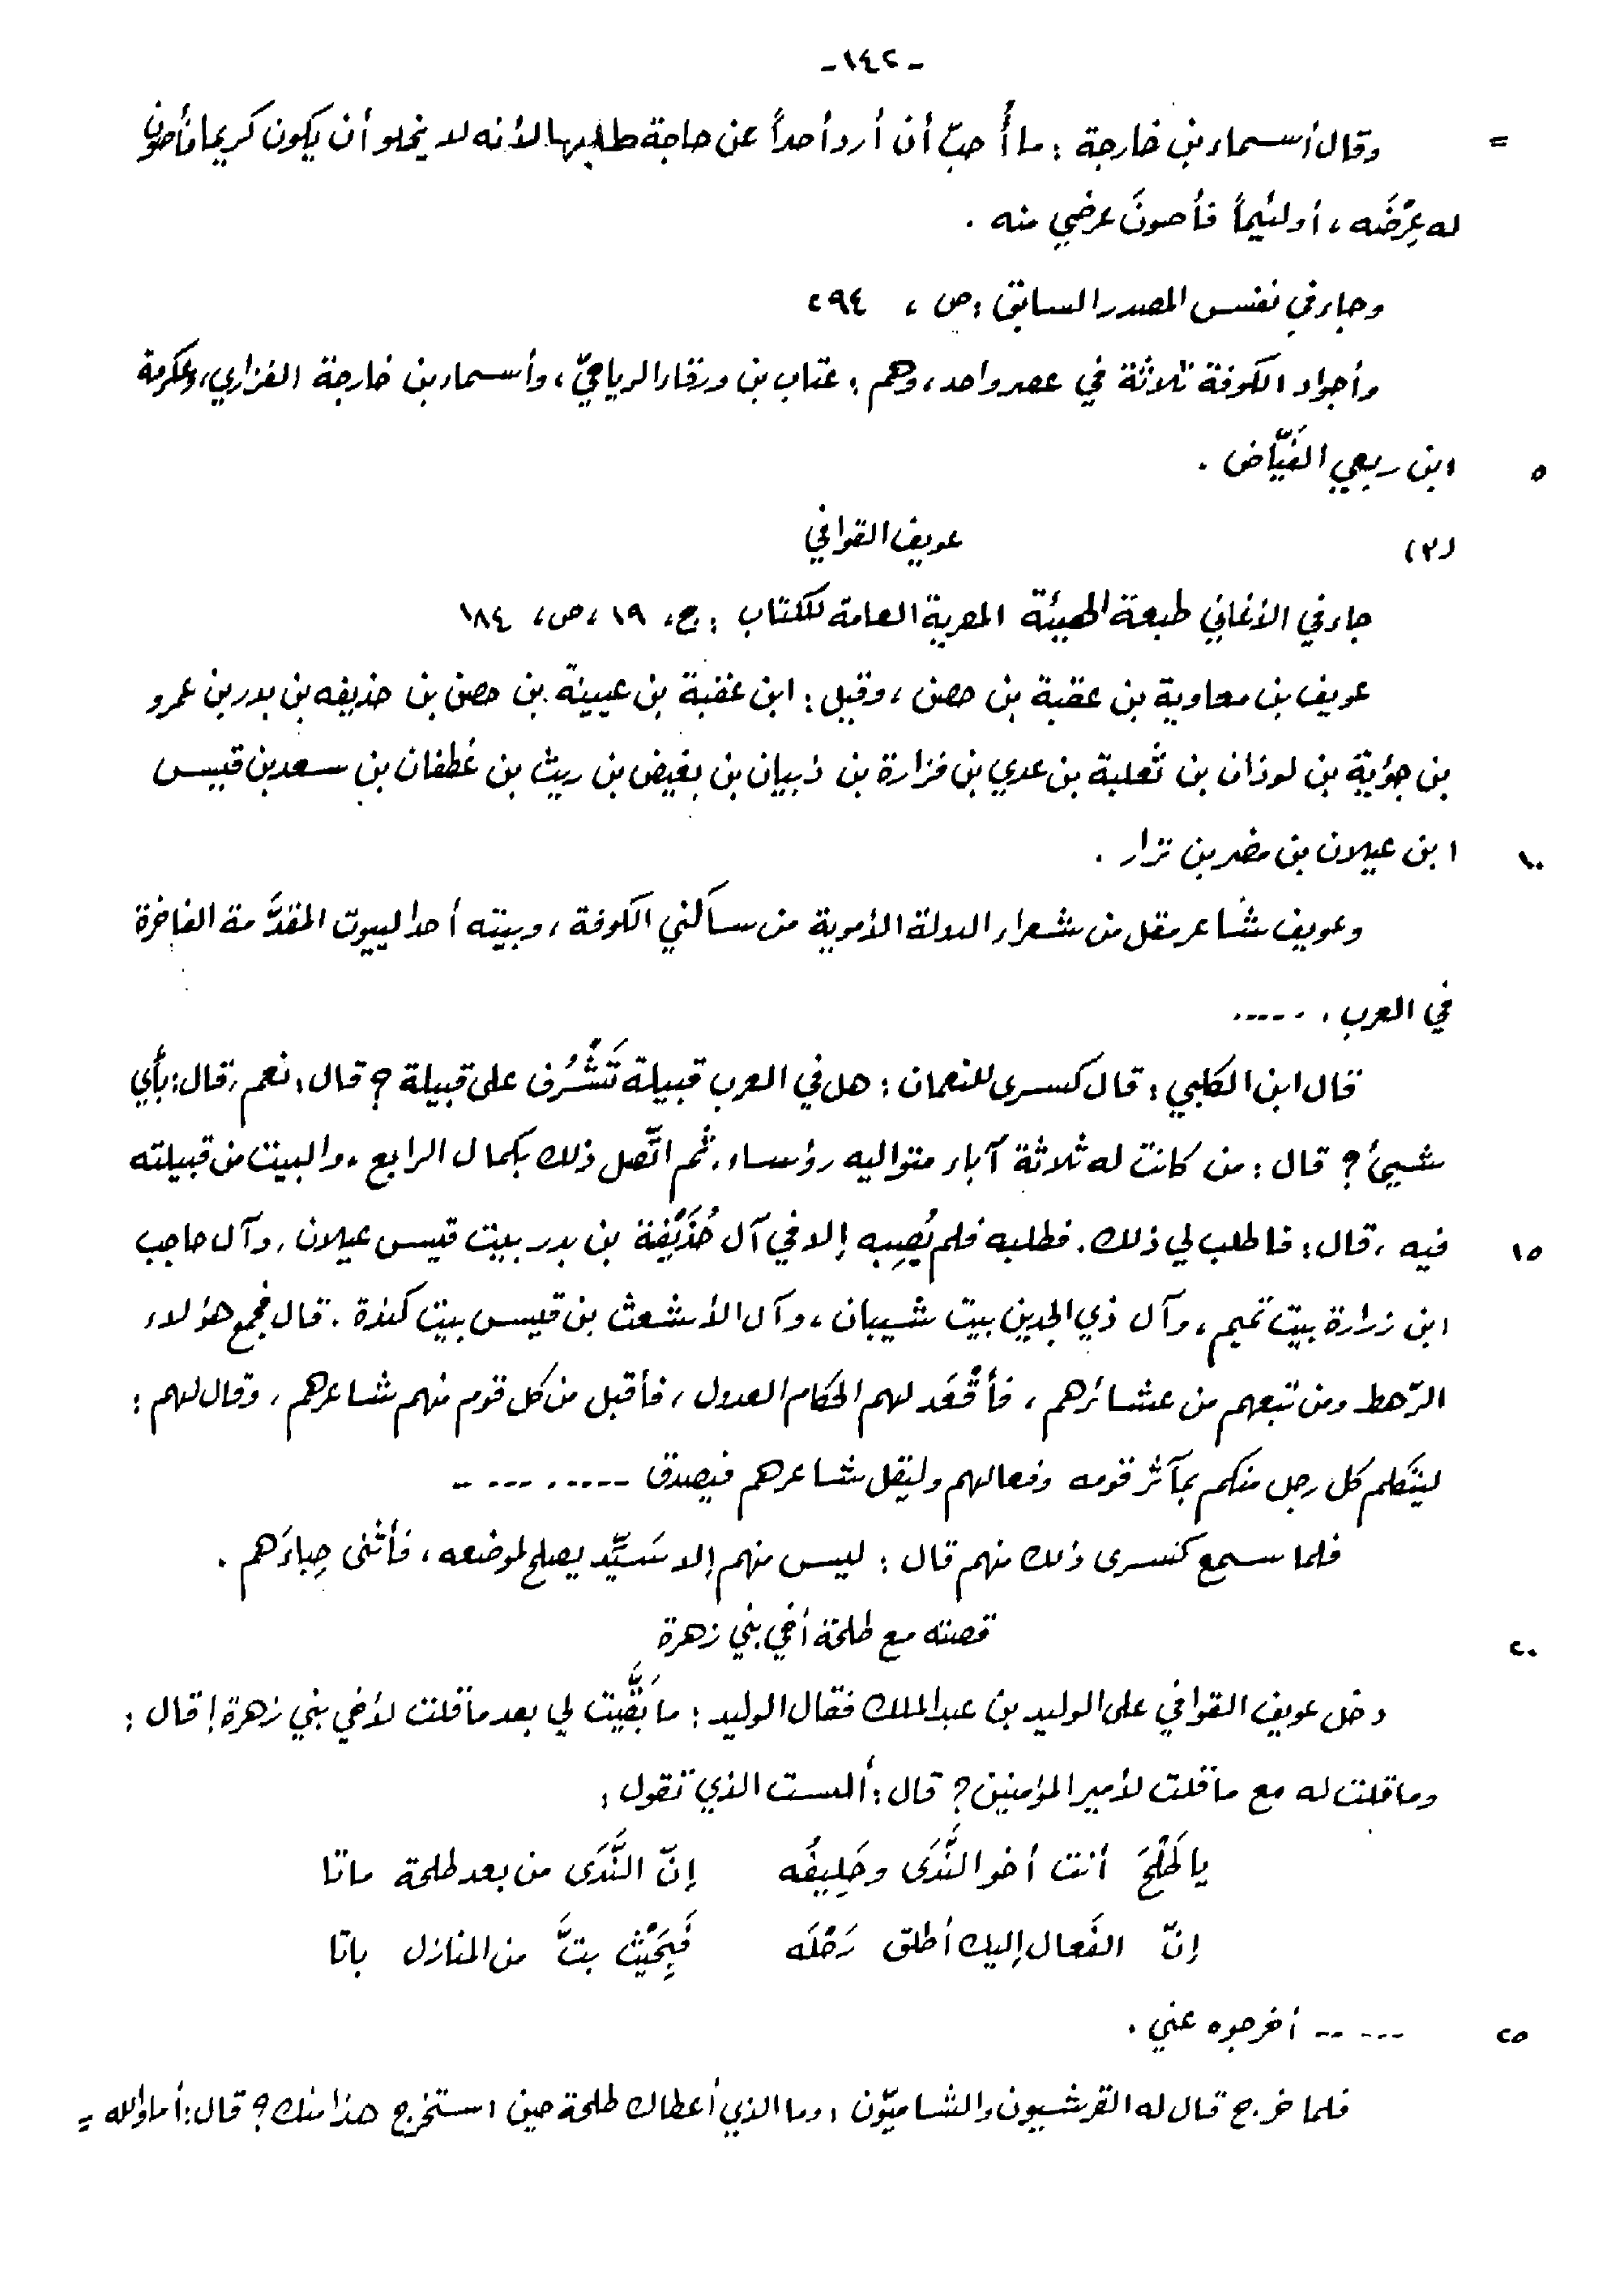 -١٤٢-
= وقال أسماء بن خارجة : ما أُحبّ أن أرد أحداً عن حاجة طلبها لأنه لا يخلو أن يكون كريما فأصون
له عِرْضَه ، أو لئيماً فأصونَ عرضي منه .
وجاء في نفس المصدر السابق : ص ، ٢٩٤
وأجواد الكوفة ثلاثة في عصر واحد ، وهم : عتاب بن ورقاء الرياحيّ ، وأسماء بن خارجة الفزاري ، وعكرمة
٥ ابن ربعي الفَيّاض .
(٣) عويف القوافي
جاء في الأغاني طبعة الهيئة المصرية العامة للكتاب : ج ، ١٩ ، ص ، ١٨٤
عويف بن معاوية بن عقبة بن حصن ، وقيل : ابن عقبة بن عيينة بن حصن بن حذيفه بن بدر بن عمرو
بن جؤية بن لوذان بن ثعلبة بن عدي بن فزارة بن ذبيان بن بغيض بن ريث بن غطفان بن سعد بن قيس
١٠ ابن عيلان بن مضر بن نزار .
وعويف شاعر مقل من شعراء الدولة الأموية من ساكني الكوفة ، وبيته أحد البيوت المقدَّمة الفاخرة
في العرب . .....
قال ابن الكلبي : قال كسرى للنعمان : هل في العرب قبيلة تَشْرُف على قبيلة ؟ قال : نعم ، قال : بأي
شيئ ؟ قال : من كانت له ثلاثة آباء متواليه رؤساء ، ثم اتّصل ذلك بكمال الرابع ، والبيت من قبيلته
١٥ فيه ، قال : فاطلب لي ذلك . فطلبه فلم يُصِبه إلا في آل حُذَيْفة بن بدر بيت قيس عيلان ، وآل حاجب
ابن زرارة بيت تميم ، وآل ذي الجدين بيت شيبان ، وآل الأشعث بن قيس بيت كندة . قال فجمع هؤلاء
الرّهط ومن تبعهم من عشائرهم ، فأقْعَد لهم الحكام العدول ، فأقبل من كل قوم منهم شاعرهم ، وقال لهم :
ليتكلم كل رجل منكم بمآثر قومه وفعالهم وليقل شاعرهم فيصدق ..... ... ..
فلما سمع كسرى ذلك منهم قال : ليس منهم إلا سَيِّد يصلح لموضعه ، فأثنى حِباءَهم .
٢٠ قصته مع طلحة أخي بني زهرة
دخل عويف القوافي على الوليد بن عبد الملك فقال الوليد : ما بَقَّيت لي بعد ما قلت لأخي بني زهرة ! قال :
وما قلت له مع ما قلت لأمير المؤمنين ؟ قال : ألست الذي تقول :
يا طَلْحَ أنت أخو النَّدَى وحَلِيفُه إنّ النَّدَى من بعد طلحة ماتا
إنّ الفَعال إليك أطلق رَحْلَه فَبِحَيْث بتَّ من المنازل باتا
٢٥ ... .. أخرجوه عني .
فلما خرج قال له القرشيون والشاميّون : وما الذي أعطاك طلحة حين استخرج هذا منك ؟ قال : أما والله =